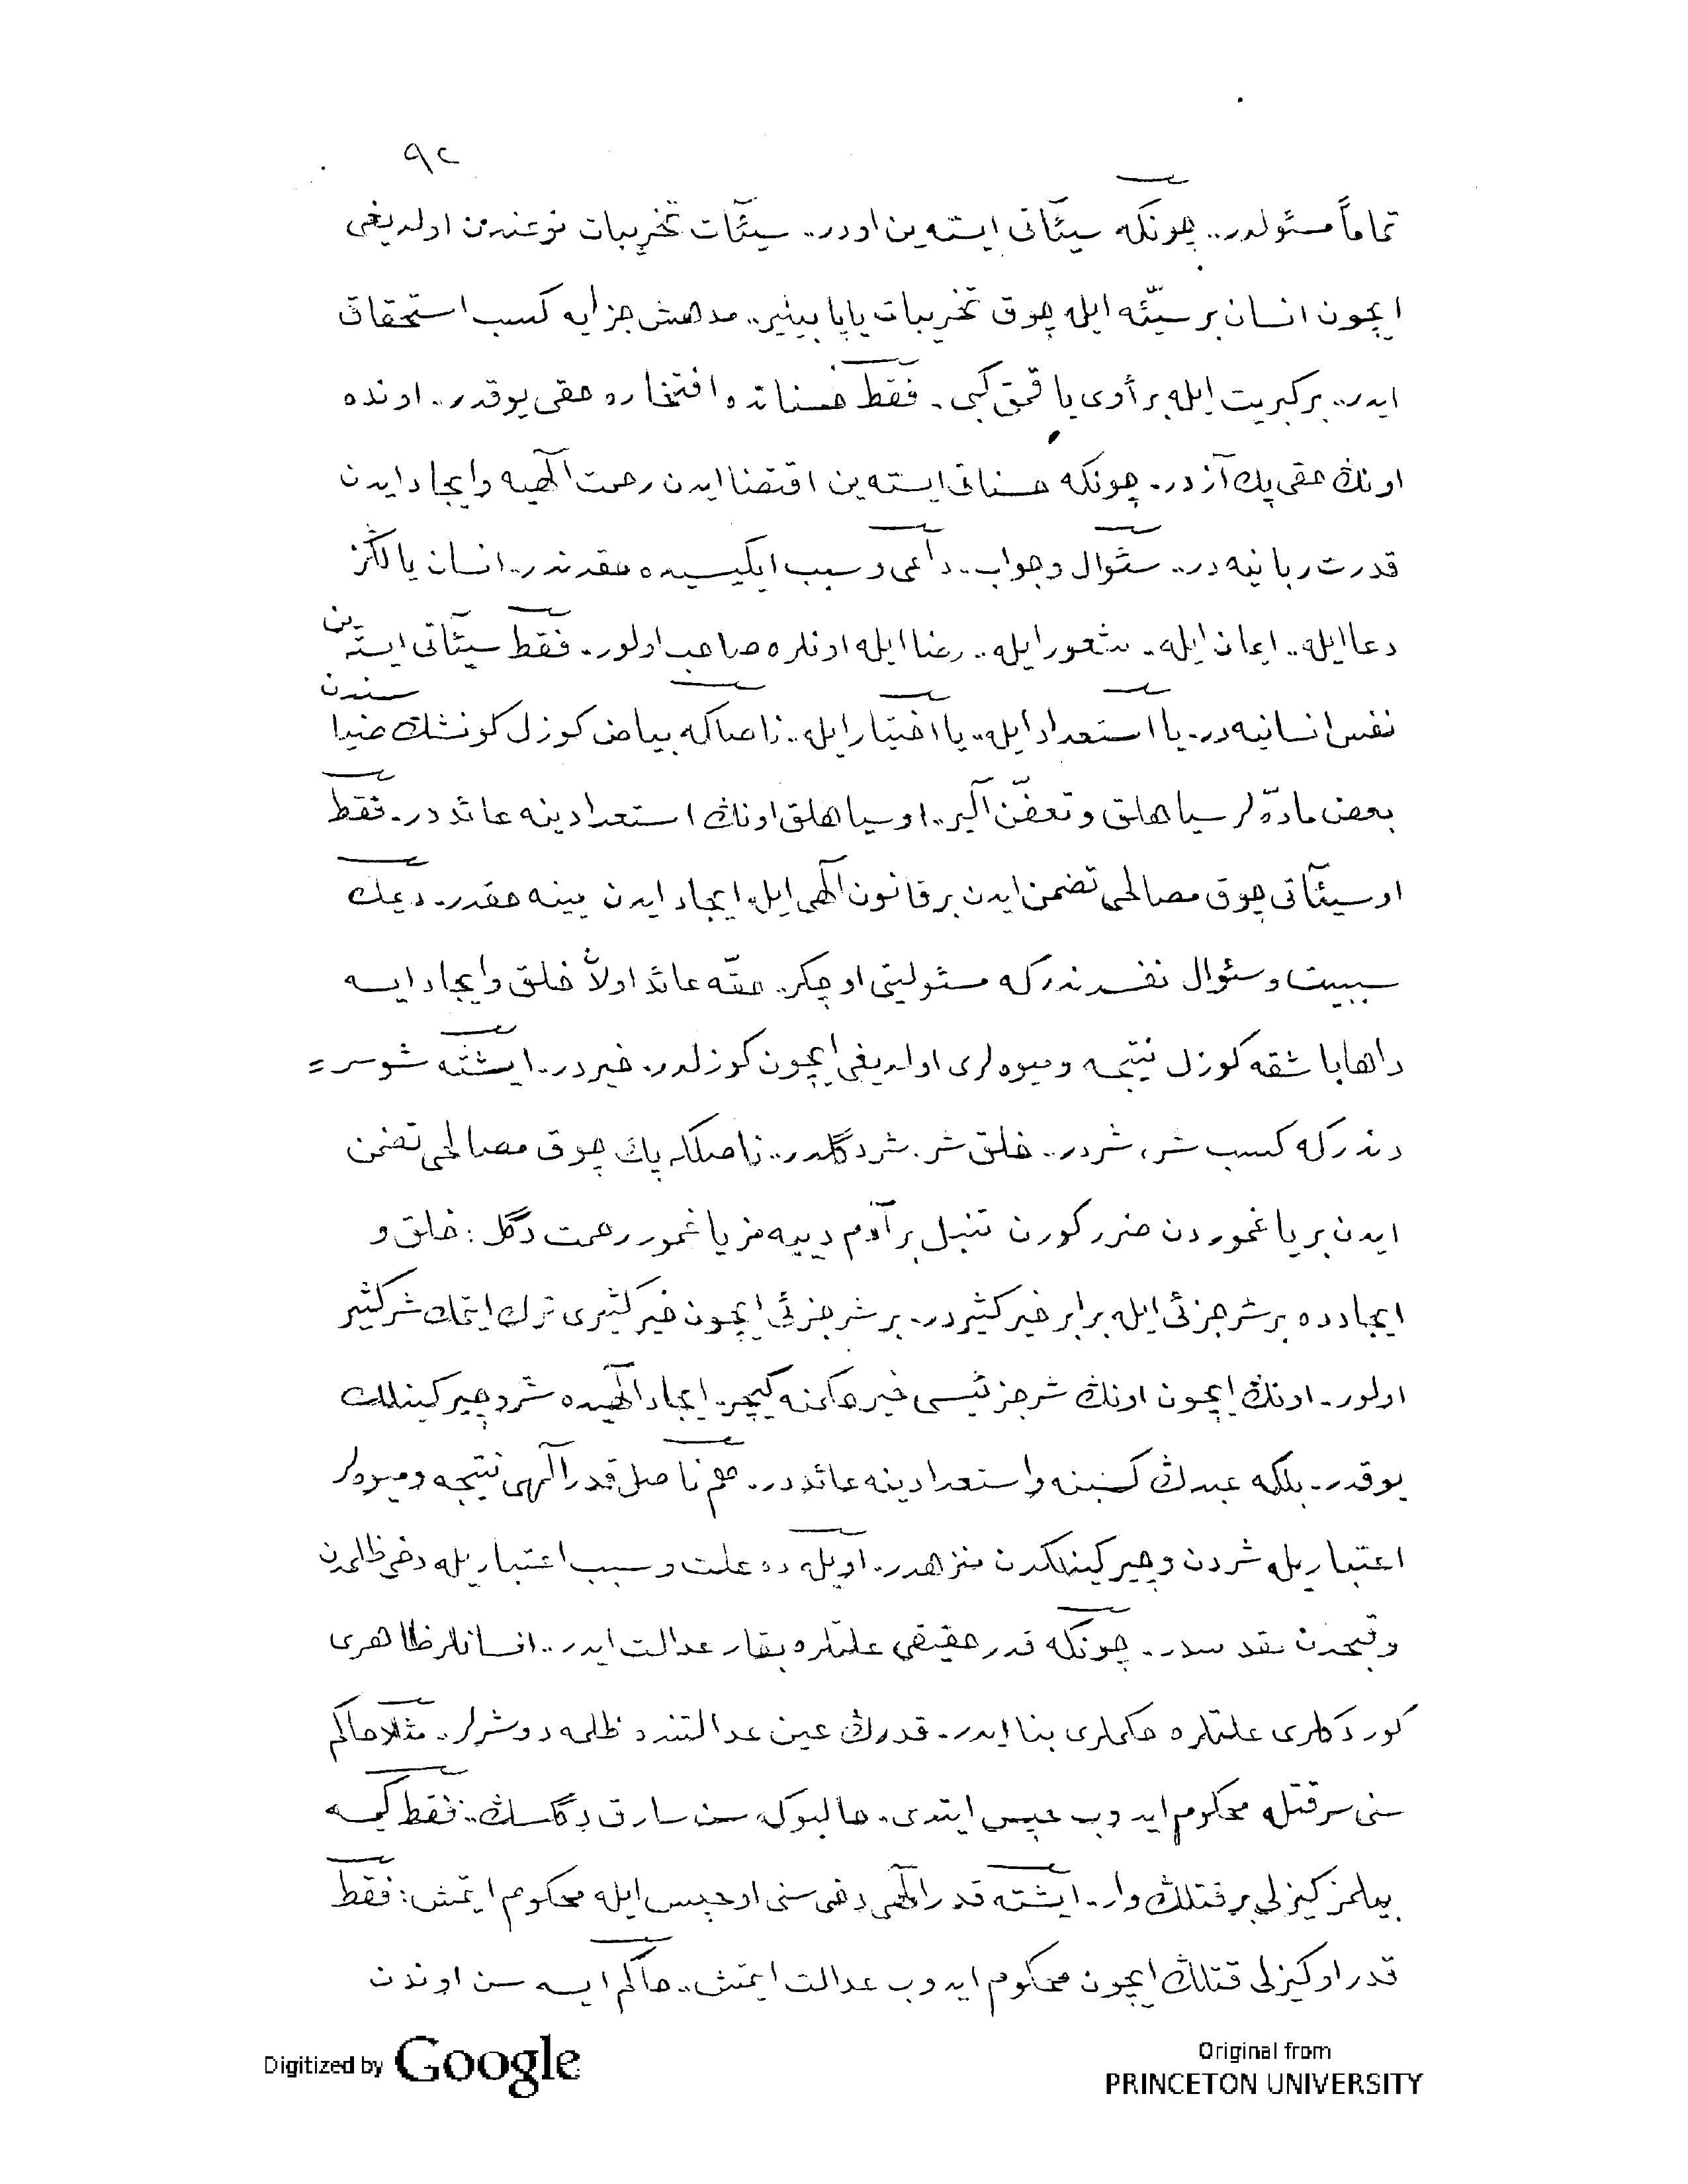 ٩٢
تماماً مسئولدر.. چونكه سيئآتى ايسته‌ين اودر.. سيئآت تخريبات نوعندن اولديغى
ايچون انسان بر سيّئه ايله چوق تخريبات ياپابيلير.. مدهش جزايه كسب استحقاق
ايدر.. بر كبريت ايله بر أوى ياقمق كبى. فقط حسناتده افتخاره حقى يوقدر.. اونده
اونڭ حقى پك آزدر. چونكه حسناتى ايسته‌ين اقتضا ايدن رحمت الٓهيه وايجاد ايدن
قدرت ربانيه‌در.. سئوال وجواب.. داعى و سبب ايكيسيده حقدندر. انسان يالڭز
دعا ايله.. ايمان ايله. شعور ايله.. رضا ايله اونلره صاحب اولور. فقط سيئآتى ايسته‌ين
نفس انسانيه‌در. يا استعداد ايله.. يا اختيار ايله.. ناصلكه بياض كوزل كونشڭ ضياسندن
بعض مادّه‌لر سياهلق و تعفّن آلير.. او سياهلق اونڭ استعدادينه عائددر. فقط
او سيئآتى چوق مصالحى تضمن ايدن بر قانون الٓهى ايله ايجاد ايدن يينه حقدر. ديمك
سببيت و سئوال نفسدندركه مسئوليتى او چكر.. حقّه عائد اولان خلق وايجاد ايسه
داها باشقه كوزل نتيجه و ميوه‌لرى اولديغى ايچون كوزلدر. خيردر. ايشته شو سر=
دندركه كسب شر، شردر.. خلق شر. شر دگلدر.. ناصلكه پك چوق مصالحى تضمن
ايدن بر ياغموردن ضرر كورن تنبل بر آدم دييه‌مز ياغمور رحمت دگل : خلق و
ايجادده بر شر جزئى ايله برابر خير كثيردر. بر شر جزئى ايچون خير كثيرى ترك ايتمك شر كثير
اولور. اونڭ ايچون اونڭ شر جزئيسى خير حكمنه كيچر. ايجاد الٓهيده شر و چيركينلك
يوقدر. بلكه عبدڭ كسبنه واستعدادينه عائددر.. هم ناصل قدر الٓهى نتيجه و ميوه‌لر
اعتباريله شردن و چيركينلكدن منزهدر. اويله ده علت و سبب اعتباريله دخى ظلمدن
و قبحدن مقدسدر. چونكه قدر حقيقى علتلره بقار عدالت ايدر.. انسانلر ظاهرى
كوردكلرى علتلره حكملرى بنا ايدر. قدرڭ عين عدالتنده ظلمه دوشرلر. مثلا حاكم
سنى سرقتله محكوم ايدوب حبس ايتدى. حالبوكه سن سارق دگلسڭ.. فقط كيمسه
بيلمز كيزلى بر قتلڭ وار. ايشته قدر الٓهى دخى سنى او حبس ايله محكوم ايتمش : فقط
قدر او كيزلى قتلڭ ايچون محكوم ايدوب عدالت ايتمش.. حاكم ايسه سن اوندن
Digitized by Google
Original from
PRINCETON UNIVERSITY